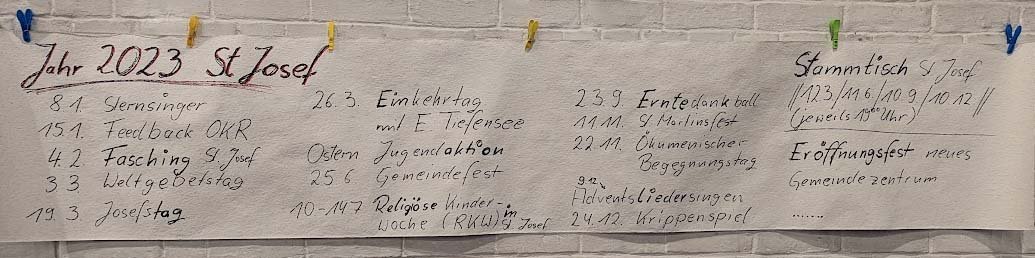 Jahr 2023 St Josef
8.1. Sternsinger
15.1. Feedback OKR
4.2. Fasching St. Josef
3.3. Weltgebetstag
19.3. Josefstag
26.3. Einkehrtag
mit E. Tiefensee
Ostern Jugendaktion
25.6. Gemeindefest
10.-14.7. Religiöse Kinder-
woche (RKW) in St. Josef
23.9. Erntedankball
11.11. St. Martinsfest
22.11. Ökumenischer
Begegnungstag
9.12.
Adventsliedersingen
24.12. Krippenspiel
Stammtisch St Josef
//12.3/11.6/10.9/10.12//
(jeweils 19⁰⁰ Uhr)
Eröffnungsfest neues
Gemeindezentrum
.......